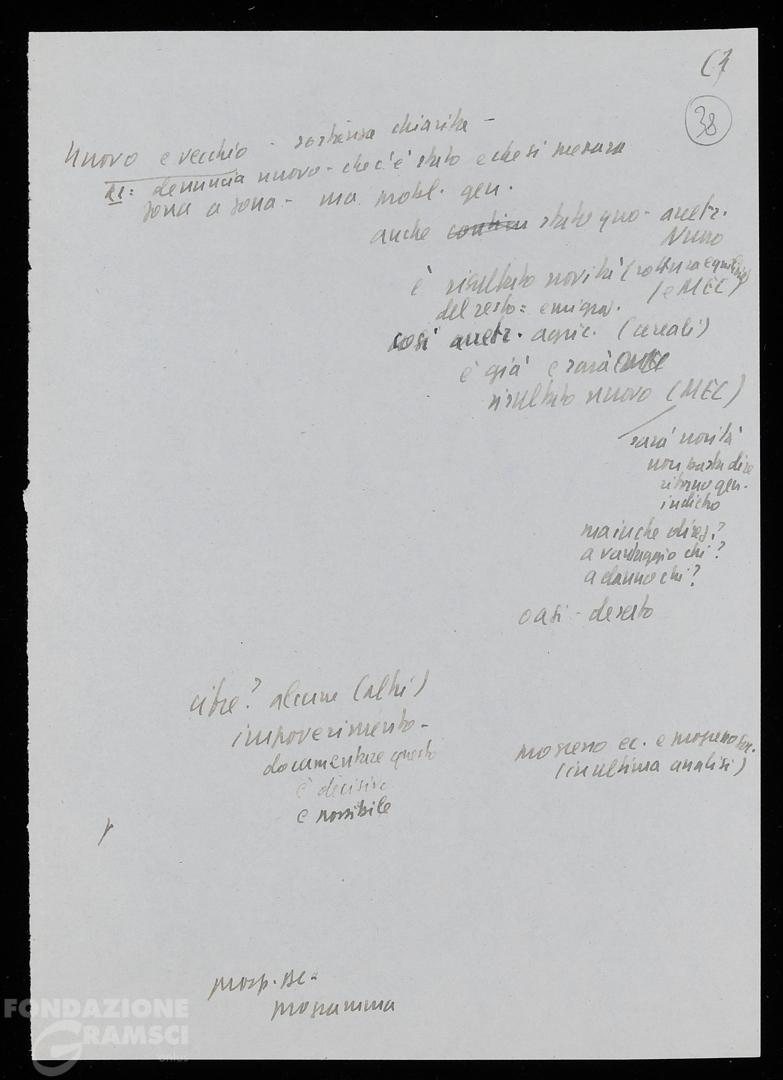 38
nuovo e vecchio - sostanza chiarita -
RI: denuncia nuovo - che c'è stato e che si misura
zona a zona - ma probl. gen.
anche contin statu quo - arretr.
Nuoro
è risultato novità (rottura equilibrio
del resto = emigraz. (e MEC)
così arretr. agric. (cereali)
è già e sarà
risultato nuovo (MEC)
sarà novità
non basta dire
ritorno gen.
indietro
ma in che direz.?
a vantaggio chi?
a danno chi?
oasi - deserto
cifre? alcune (altri)
impoverimento -
documentare questo
è decisivo
è possibile
progresso ec. e progresso soc.
(in ultima analisi)
prosp. sc =
programma
FONDAZIONE
GRAMSCI
onlus